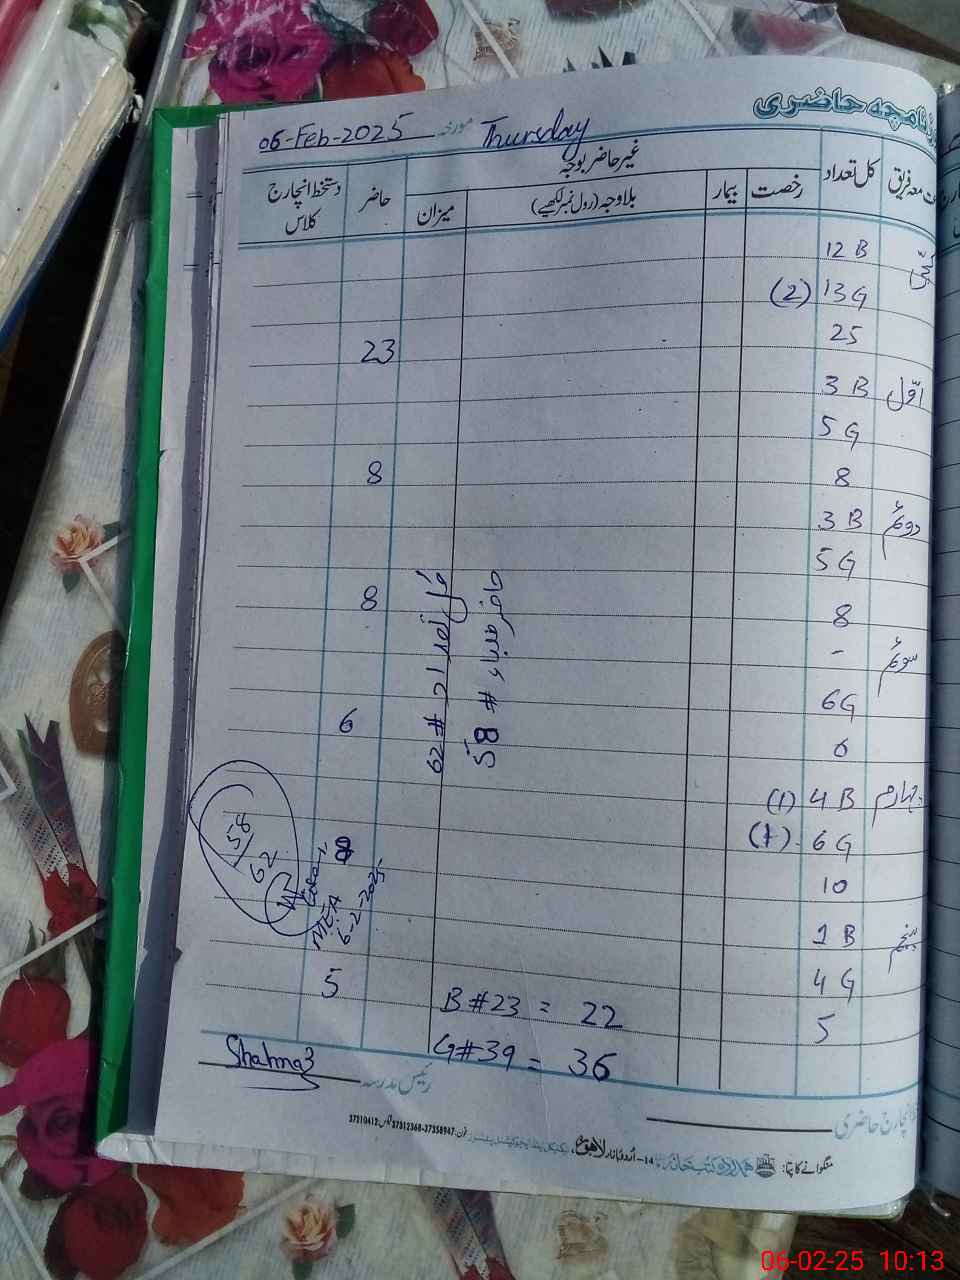 روزنامچہ حاضری
06-Feb-2025 مورخہ Thursday
معہ فریق
کل تعداد
رخصت
بیمار
غیر حاضر بوجہ
بلاوجہ (رول نمبر لکھیے)
میزان
حاضر
دستخط انچارج کلاس
کچی
12 B
(2) 13 G
25
23
اوّل
3 B
5 G
8
8
دوئم
3 B
5 G
8
8
سوئم
-
6 G
6
6
چہارم
(1) 4 B
(1) 6 G
10
8
پنجم
1 B
4 G
5
5
کل تعداد # 62
حاضر # 58
58
62
MEA
6-2-2025
B # 23 = 22
G # 39 = 36
Shahnaz
رئیس مدرسہ
انچارج حاضری
منگوانے کا پتا: ہمدرد کتب خانہ
14-اُردو بازار لاہور، فون: 37358947-37312368 فیکس: 37210412
06-02-25 10:13